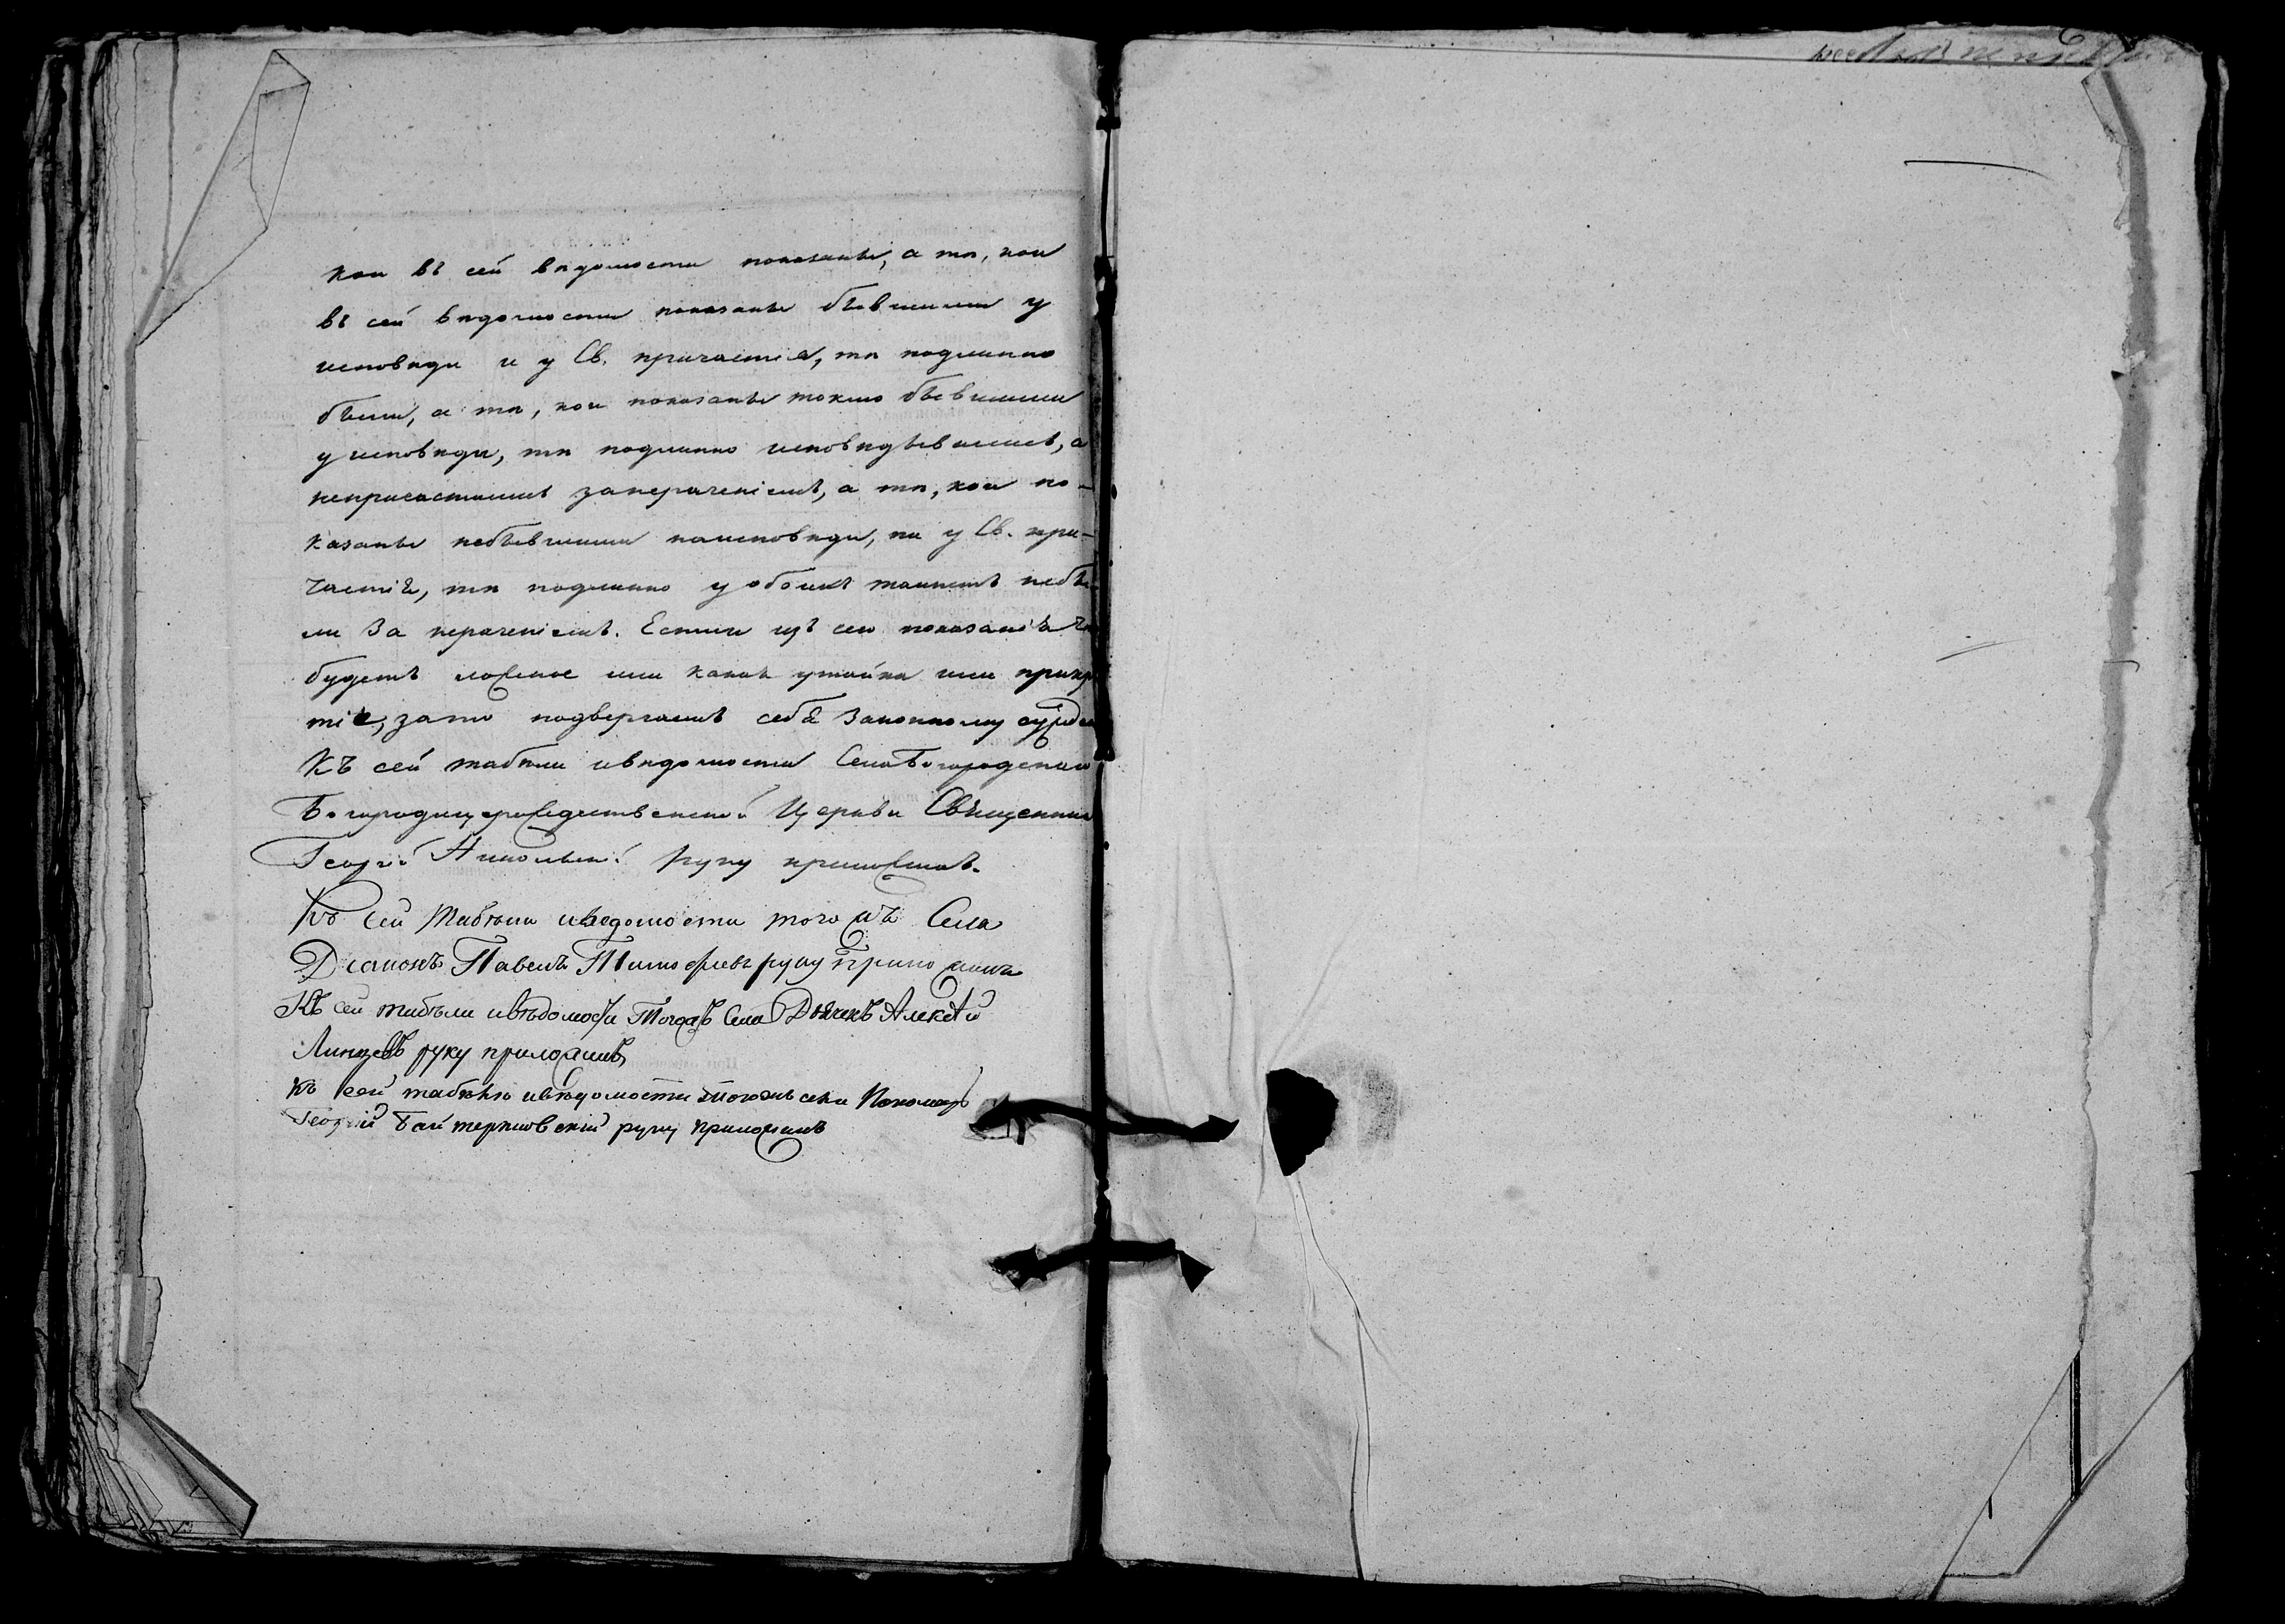 кои въ сей вѣдомости показаны, а тѣ, кои
въ сей вѣдомости показаны бывшими у
исповѣди и у Св. причастія, тѣ подлинно
были, а тѣ, кои показаны токмо бывшими
у исповѣди, тѣ подлинно исповѣдывались, а
непричастились занераченіемъ, а тѣ, кои по-
казаны небывшими наисповѣди, ни у Св. при-
частія, тѣ подлинно у обоихъ таинствъ небы-
ли за нераченіемъ. Естли изъ сего показанія
будетъ ложное или какая утайка или прикры
тіе, зато подвергаемъ себя Законному сужде
Къ сей табели ивѣдомости Села Богородскаго
Богородицерождественской Церкви Священник
Георгій Никольскій руку приложилъ.
Къ сей табѣли иведомости того жъ Села
Діаконъ Павелъ Тимофеевъ руку приложилъ
Къ сей табели ивѣдомости Тогожъ Села Дьячекъ Алексѣй
руку приложилъ
Къ сей табѣлѣ ивѣдомости тогожъ села Пономарь
Георгій руку приложилъ